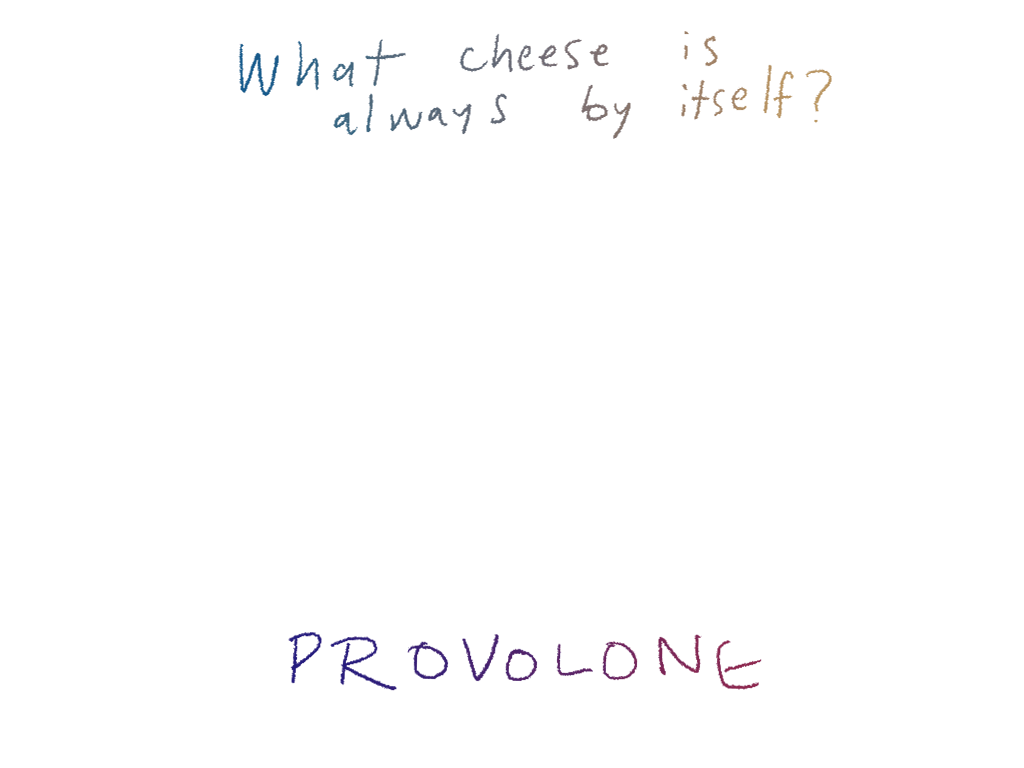 What cheese is
always by itself?
PROVOLONE